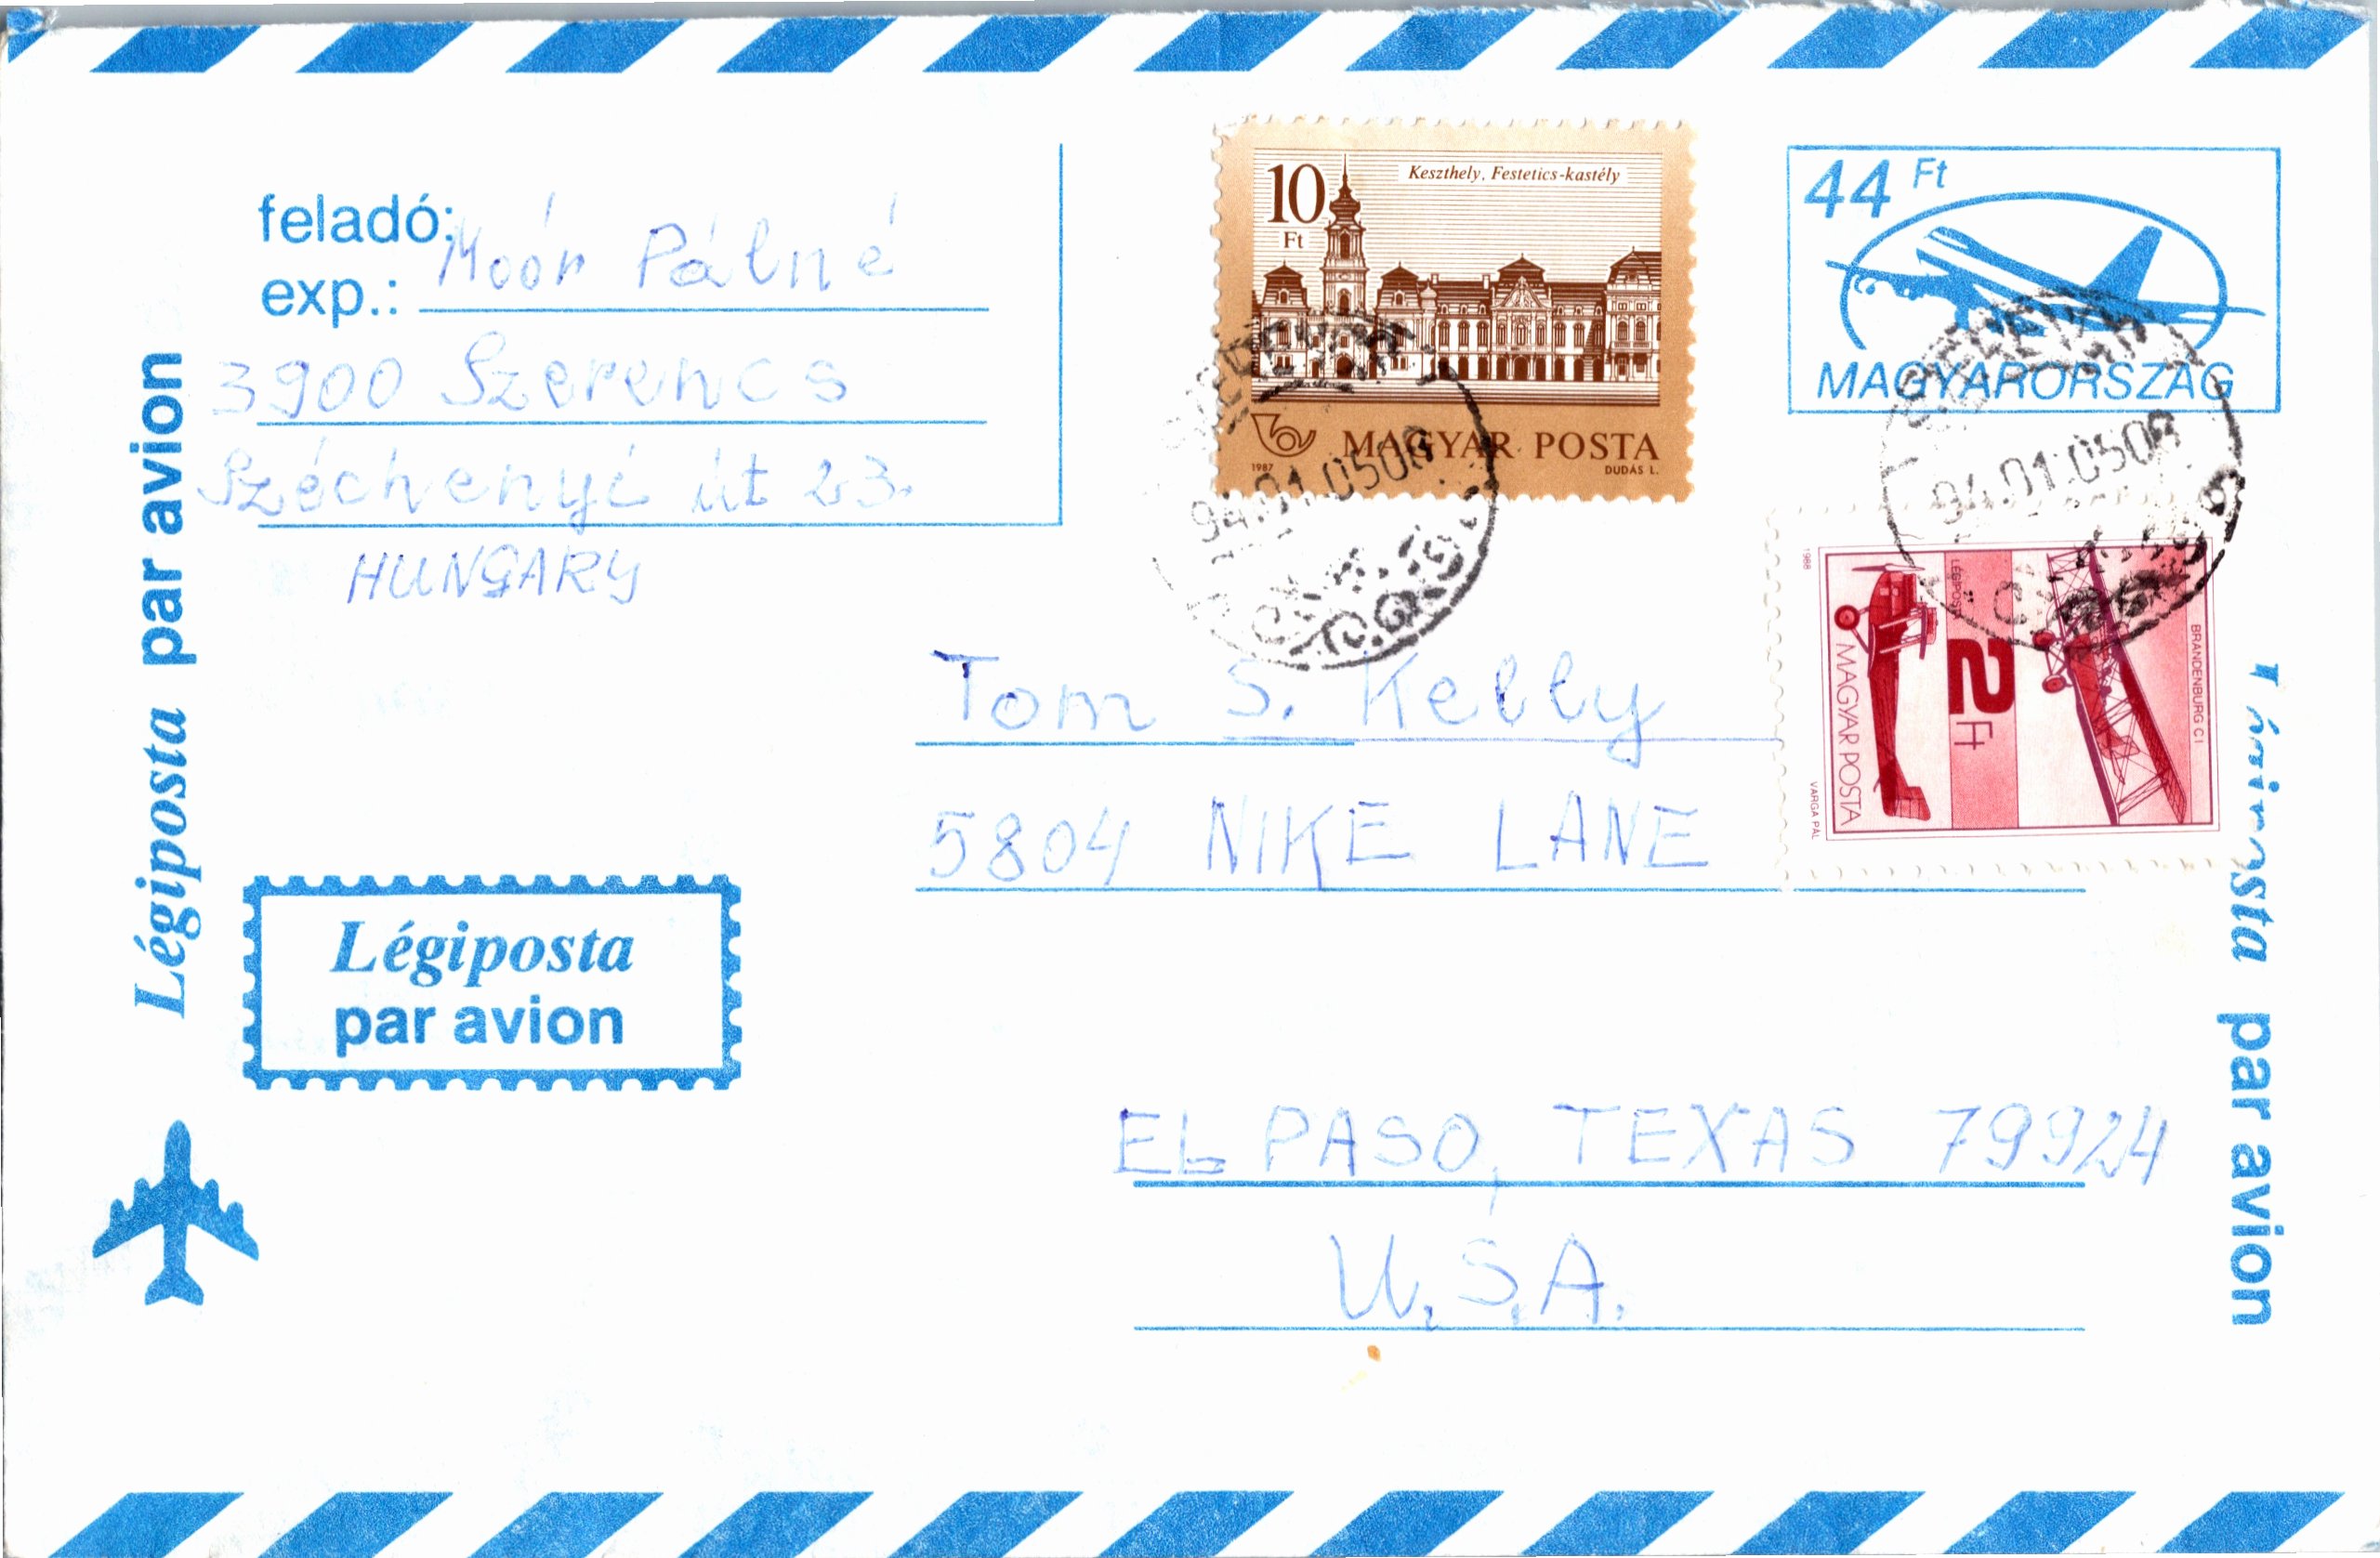 feladó:
exp.: Moór Pálné
3900 Szerencs
Széchenyi út 23.
HUNGARY
10
Ft
Keszthely, Festetics-kastély
MAGYAR POSTA
1987
DUDÁS L.
44 Ft
MAGYARORSZÁG
94.01.0508
94.01.0508
1988
LÉGIPOSTA
2 Ft
BRANDENBURG C1
MAGYAR POSTA
VARGA PÁL
Tom S. Kelly
5804 NIKE LANE
EL PASO, TEXAS 79924
U.S.A.
Légiposta par avion
Légiposta
par avion
Légiposta par avion